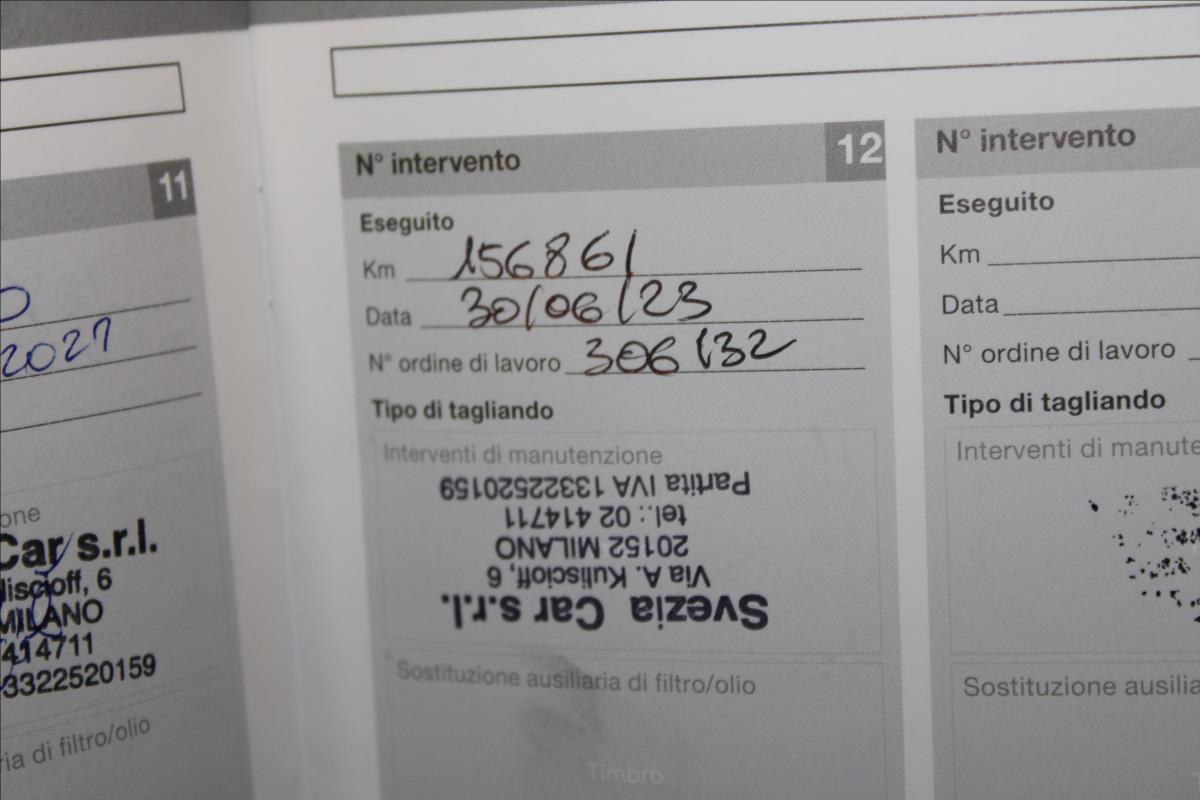 11
2021
one
Car s.r.l.
liscioff, 6
MILANO
414711
3322520159
ria di filtro/olio
N° intervento 12
Eseguito
Km 156861
Data 30/06/23
N° ordine di lavoro 306132
Tipo di tagliando
Interventi di manutenzione
Svezia Car s.r.l.
Via A. Kuliscioff, 6
20152 MILANO
tel.: 02 414711
Partita IVA 13322520159
Sostituzione ausiliaria di filtro/olio
Timbro
N° intervento
Eseguito
Km
Data
N° ordine di lavoro
Tipo di tagliando
Interventi di manute
Sostituzione ausilia